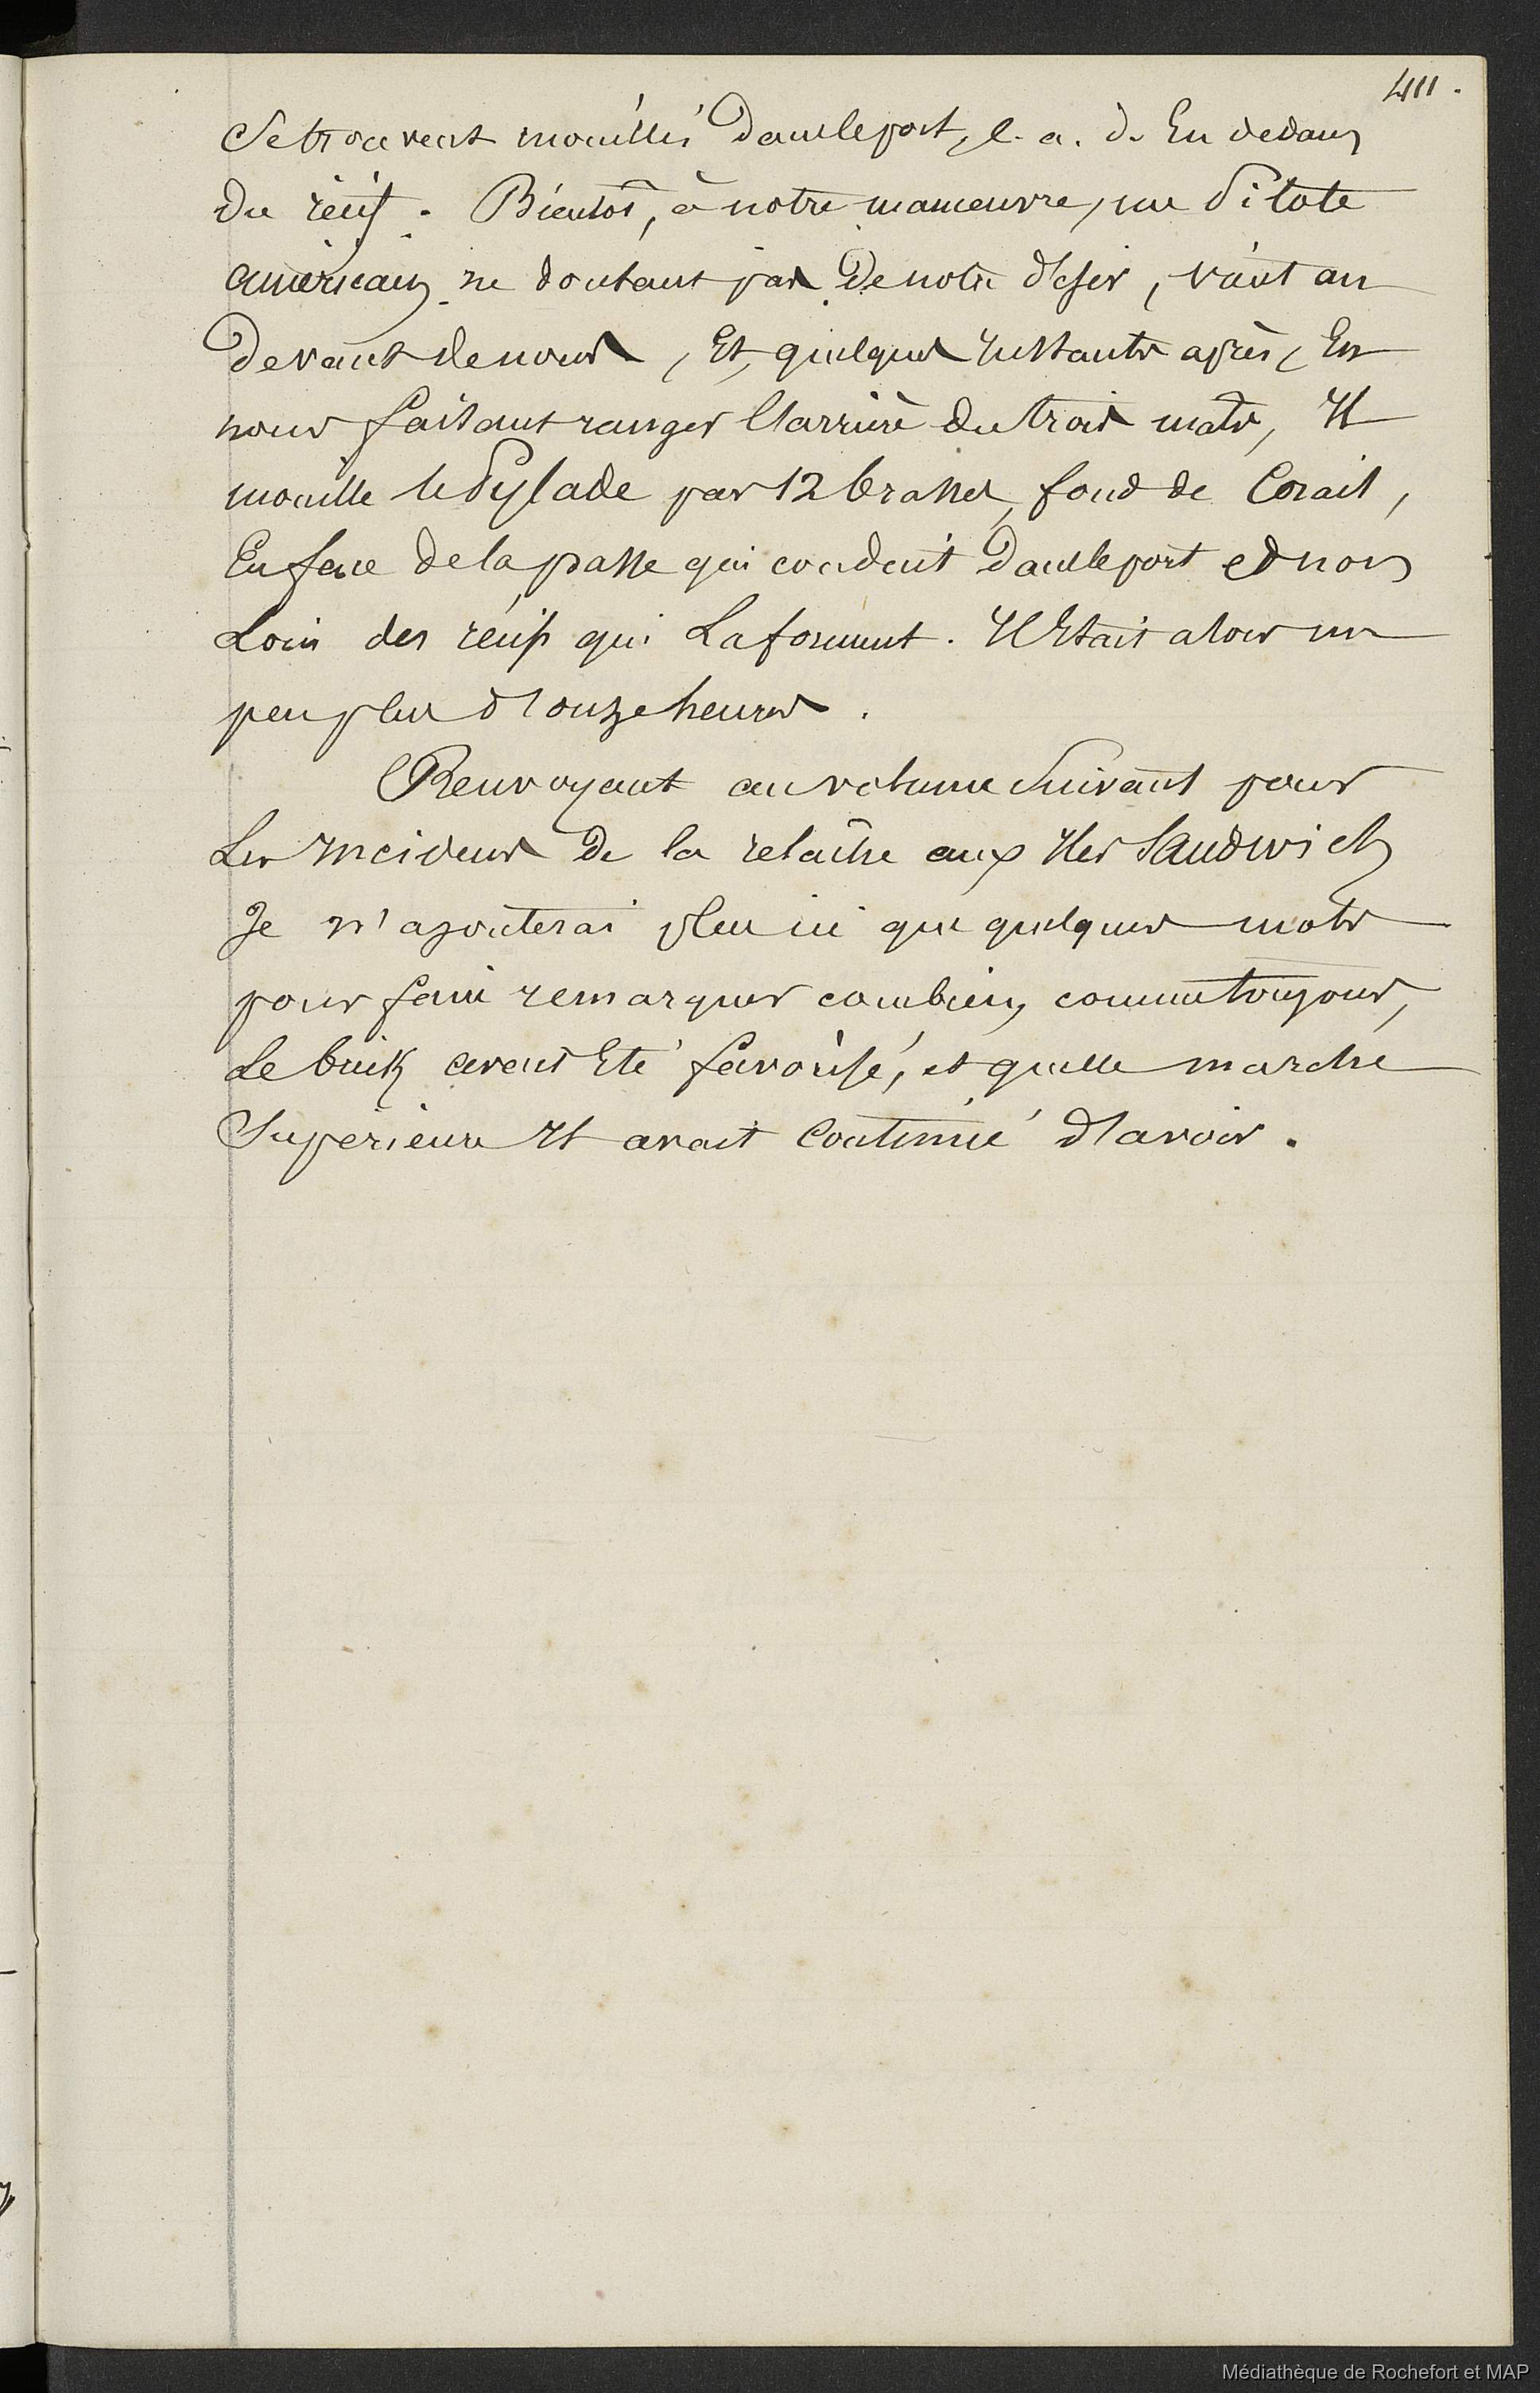 411.
Se trouvent mouillés dans le port, c. a. d. En dedans
du récif. Bientôt, à notre manœuvre, un Pilote
américain ne doutant pas de notre désir, vient au
devant de nous, Et, quelques Instants après, En
nous faisant ranger l'arrière du trois mats, Il
mouille le Pylade par 12 brasses, fond de Corail,
En face de la passe qui conduit dans le port et non
Loin des récifs qui La forment. Il Etait alors un
peu plus d'onze heures.
Renvoyant au volume Suivant pour
Les Incidents de la relâche aux Iles Sandwich
Je n'ajouterai plus ici que quelques mots
pour faire remarquer combien, comme toujours,
Le brick avait Eté favorisé, et quelle marche
Supérieure Il avait Continué d'avoir.
Médiathèque de Rochefort et MAP